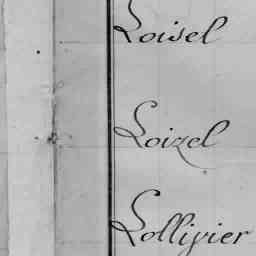 Loisel
Loizel
Lollivier